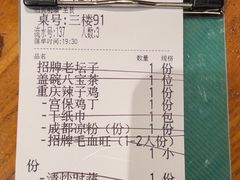 桌号:三楼91
流水号:137 人数:3
落单时间:19:30
品名 数量 规格
招牌老坛子 1 份
盖碗八宝茶 1 位
重庆辣子鸡 1 份
-宫保鸡丁 1 份
-干纸巾 1 包
-成都凉粉(份) 1 份
-招牌毛血旺(1-2人份)
1 小
份